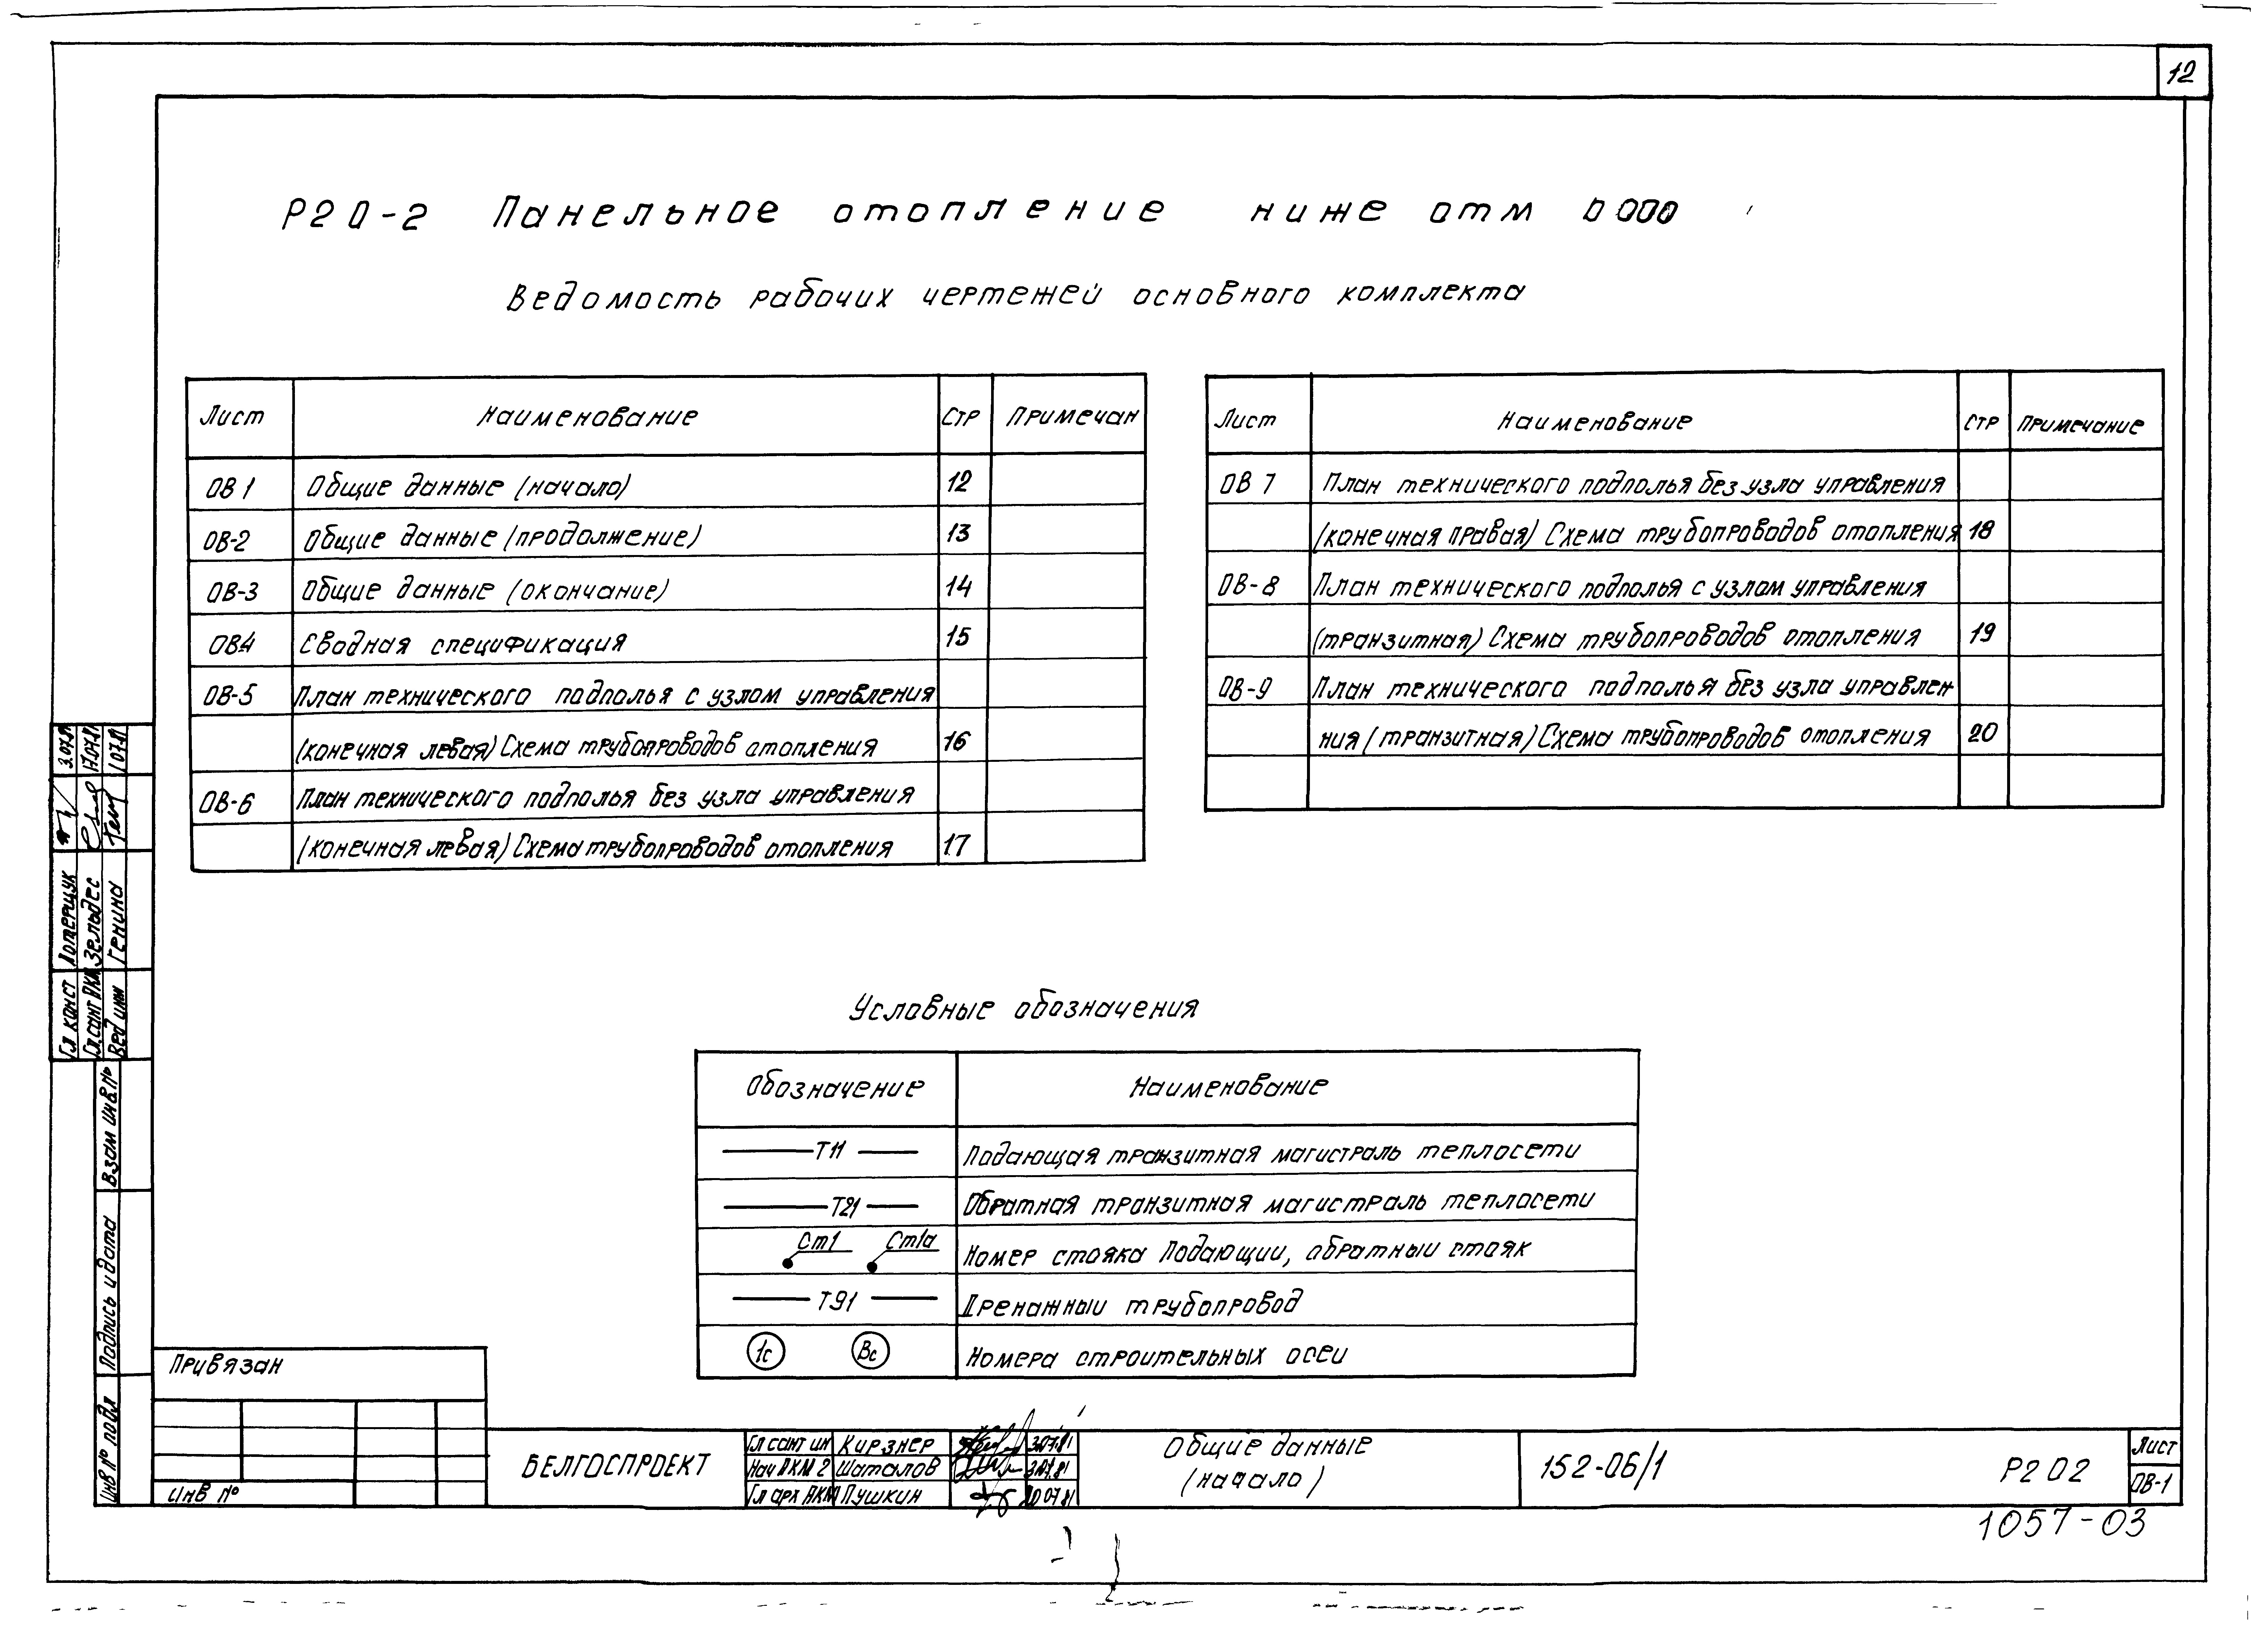 12
Р20-2 Панельное отопление ниже отм 0000
Ведомость рабочих чертежей основного комплекта
Лист Наименование Стр Примечан
ОВ 1 Общие данные (начало) 12
ОВ-2 Общие данные (продолжение) 13
ОВ-3 Общие данные (окончание) 14
ОВ4 Сводная спецификация 15
ОВ-5 План технического подполья с узлом управления
(конечная левая) Схема трубопроводов отопления 16
ОВ-6 План технического подполья без узла управления
(конечная левая) Схема трубопроводов отопления 17
Лист Наименование Стр Примечание
ОВ 7 План технического подполья без узла управления
(конечная правая) Схема трубопроводов отопления 18
ОВ-8 План технического подполья с узлом управления
(транзитная) Схема трубопроводов отопления 19
ОВ-9 План технического подполья без узла управлен
ния (транзитная) Схема трубопроводов отопления 20
Условные обозначения
Обозначение Наименование
Т11 Подающая транзитная магистраль теплосети
Т21 Обратная транзитная магистраль теплосети
Ст1 Ст1а Номер стояка Подающии, обратныи стояк
Т91 Дренажныи трубопровод
1с Вс Номера строительных осеи
Гл конст Потерщук 3.07.81
Гл.сант АКМ Зельдес 17.07.81
Вед инж Генина 1 07.81
Взам инв.№
Подпись и дата
Инв № подл
Привязан
Инв №
БЕЛГОСПРОЕКТ
Гл сант ин Кирзнер 3.07.81
Нач АКМ 2 Шаталов 3.07.81
Гл арх АКМ Пушкин 20 07.81
Общие данные
(начало)
152-06/1
Р2 0 2
Лист
ОВ-1
1057-03